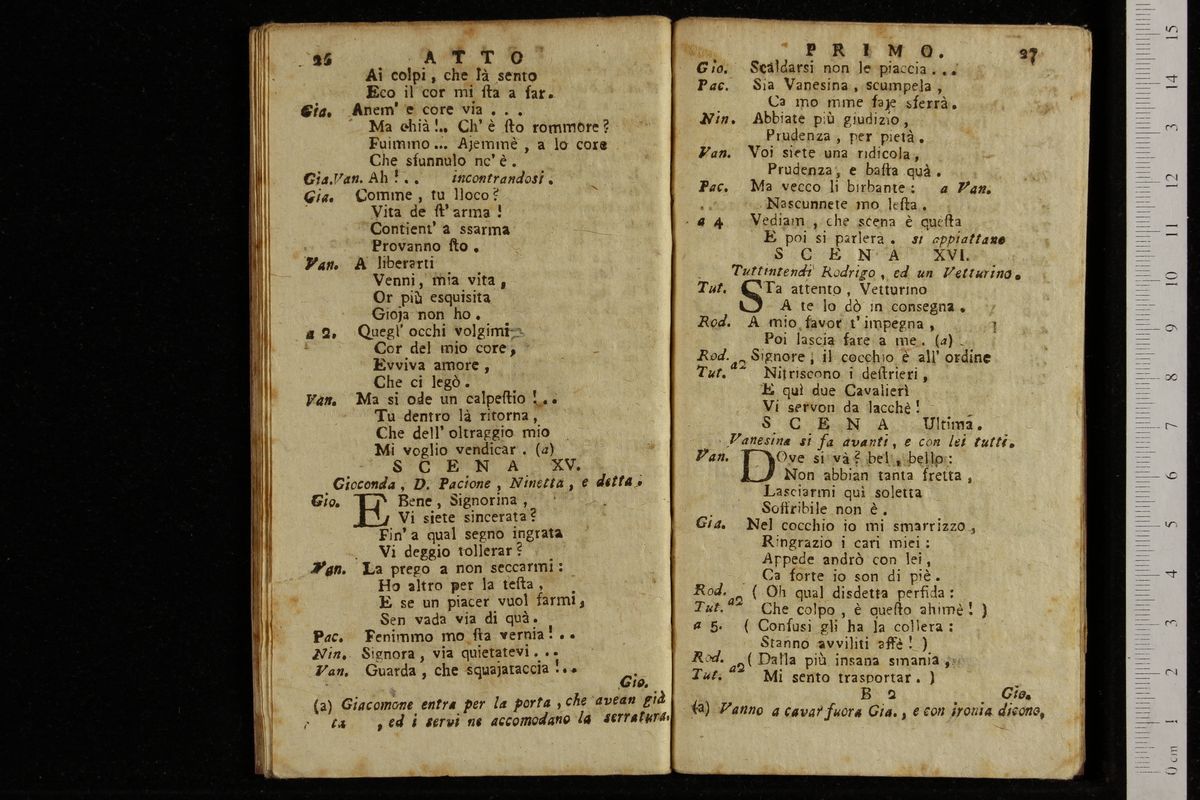 26 ATTO
Ai colpi, che là sento
Eco il cor mi ſta a far.
Gia. Anem' e core via ...
Ma chià!.. Ch' è ſto rommore?
Fuimmo... Ajemmè, a lo core
Che sfunnulo nc' è.
Gia.Van. Ah!.. incontrandosi.
Gia. Comme, tu lloco?
Vita de ſt' arma!
Contient' a ssarma
Provanno ſto.
Van. A liberarti
Venni, mia vita,
Or più esquisita
Gioja non ho.
a 2. Quegl' occhi volgimi
Cor del mio core,
Evviva amore,
Che ci legò.
Van. Ma si ode un calpeſtio!..
Tu dentro là ritorna,
Che dell' oltraggio mio
Mi voglio vendicar. (a)
SCENA XV.
Gioconda, D. Pacione, Ninetta, e detta.
Gio. EBene, Signorina,
Vi siete sincerata?
Fin' a qual segno ingrata
Vi deggio tollerar?
Van. La prego a non seccarmi:
Ho altro per la teſta,
E se un piacer vuol farmi,
Sen vada via di quà.
Pac. Fenimmo mo ſta vernia!..
Nin. Signora, via quietatevi...
Van. Guarda, che squajataccia!..
Gio.
(a) Giacomone entra per la porta, che avean già
ta, ed i servi ne accomodano la serratura.
PRIMO. 27
Gio. Scaldarsi non le piaccia...
Pac. Sia Vanesina, scumpela,
Ca mo mme faje sferrà.
Nin. Abbiate più giudizio,
Prudenza, per pietà.
Van. Voi siete una ridicola,
Prudenza, e baſta quà.
Pac. Ma vecco li birbante: a Van.
Nascunnete mo leſta.
a 4 Vediam, che scena è queſta
E poi si parlera. si appiattano
SCENA XVI.
Tuttintendi Rodrigo, ed un Vetturino.
Tut. STa attento, Vetturino
A te lo dò in consegna.
Rod. A mio favor t' impegna,
Poi lascia fare a me. (a)
Rod. a2 Signore, il cocchio è all' ordine
Tut. Nitriscono i deſtrieri,
E quì due Cavalierì
Vi servon da lacchè!
SCENA Ultima.
Vanesina si fa avanti, e con lei tutti.
Van. DOve si và? bel, bello:
Non abbian tanta fretta,
Lasciarmi quì soletta
Soffribile non è.
Gia. Nel cocchio io mi smarrizzo,
Ringrazio i cari miei:
Appede andrò con lei,
Ca forte io son di piè.
Rod. a2 ( Oh qual disdetta perfida:
Tut. Che colpo, è queſto ahimè! )
a 5. ( Confusi gli ha la collera:
Stanno avviliti affè! )
Rod. a2 ( Dalla più insana smania,
Tut. Mi sento trasportar. )
B 2 Gio.
(a) Vanno a cavar fuora Gia., e con ironia dicono,